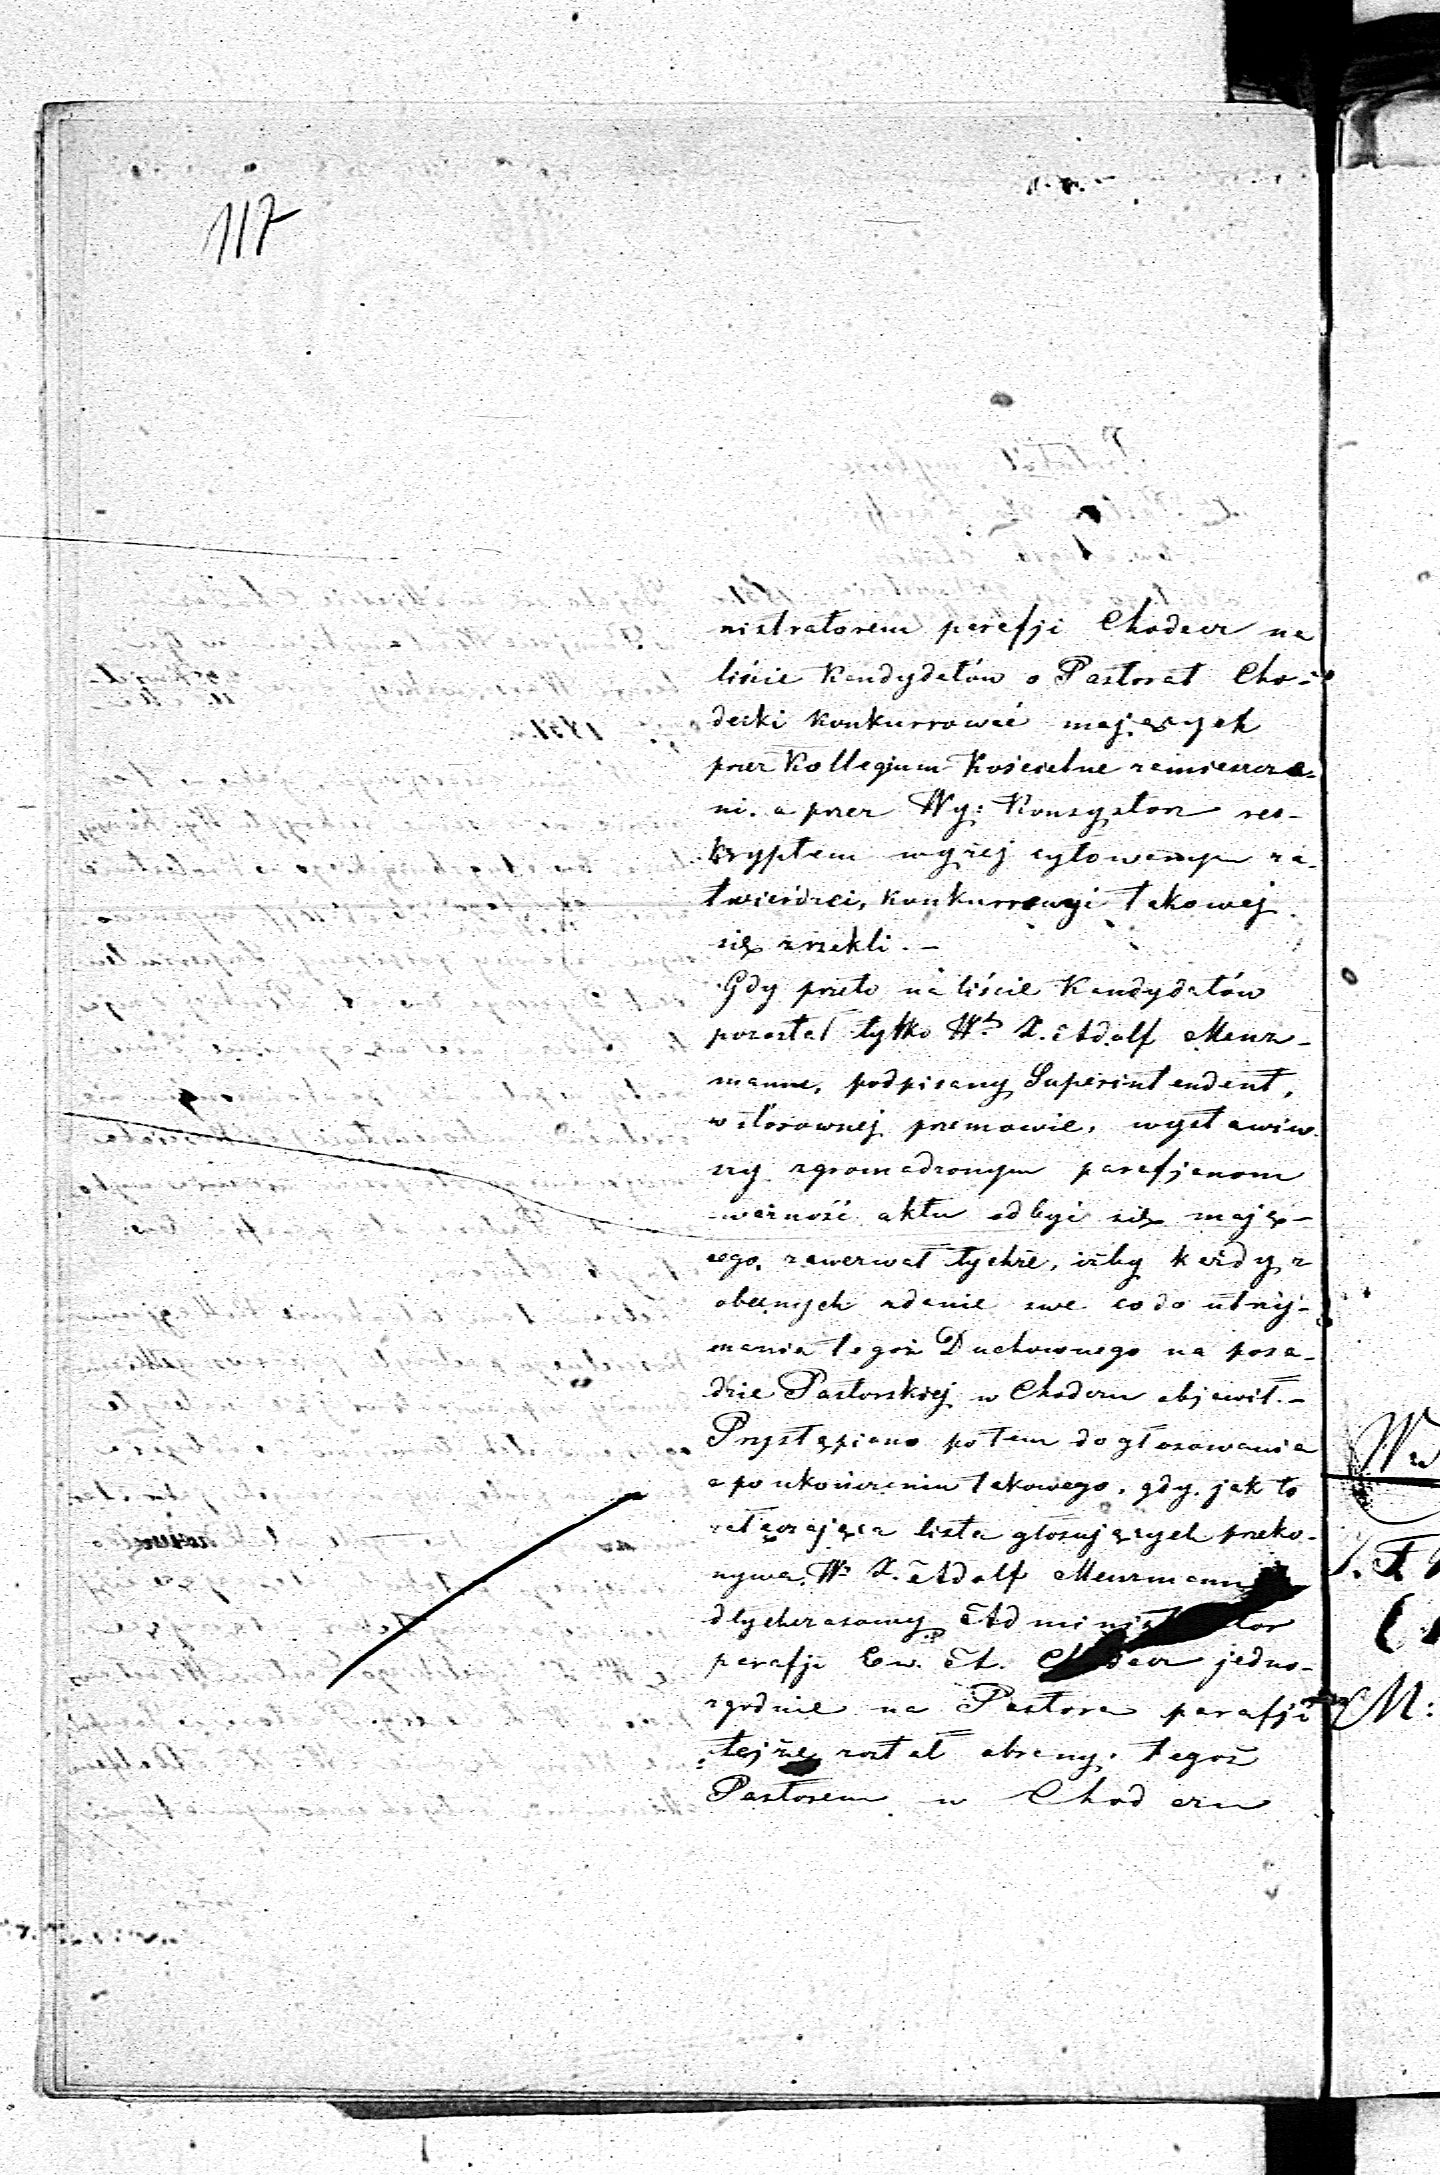 117
nistratorem parafji Chodecz na
liście Kandydatów o Pastorat Cho-
decki Konkurrować mających
przez Kollegium Kościelne zamieszcze-
ni, a przez Wy: Konsystorz res-
kryptem wyżej cytowanym za-
twierdzei, konkurrencyi takowej
się zrzekli. –
Gdy przeto na liście Kandydatów
pozostał tylko Wy X. Adolf Menz-
mann, podpisany Superintendent,
w stosownej przemowie, wystawiw-
szy zgromadzonym parafjanom
ważność aktu odbyć się mają-
cego, zawezwał tychże, iżby każdy z
obecnych zdanie swe co do utrzy-
mania tegoż Duchownego na posa-
dzie Pastorskiej w Chodczu objawił. –
Przystąpiono potem do głosowania
a po ukończeniu takowego, gdy, jak to
załączająca lista głosujących przeko-
nywa, Wy X. Adolf Menzmann
dtychczasowy Administrator
parafji Ew. A. Chodecz jedno-
zgodnie na Pastora parafji
tejże został obrany, tegoż
Pastorem w Chodczu